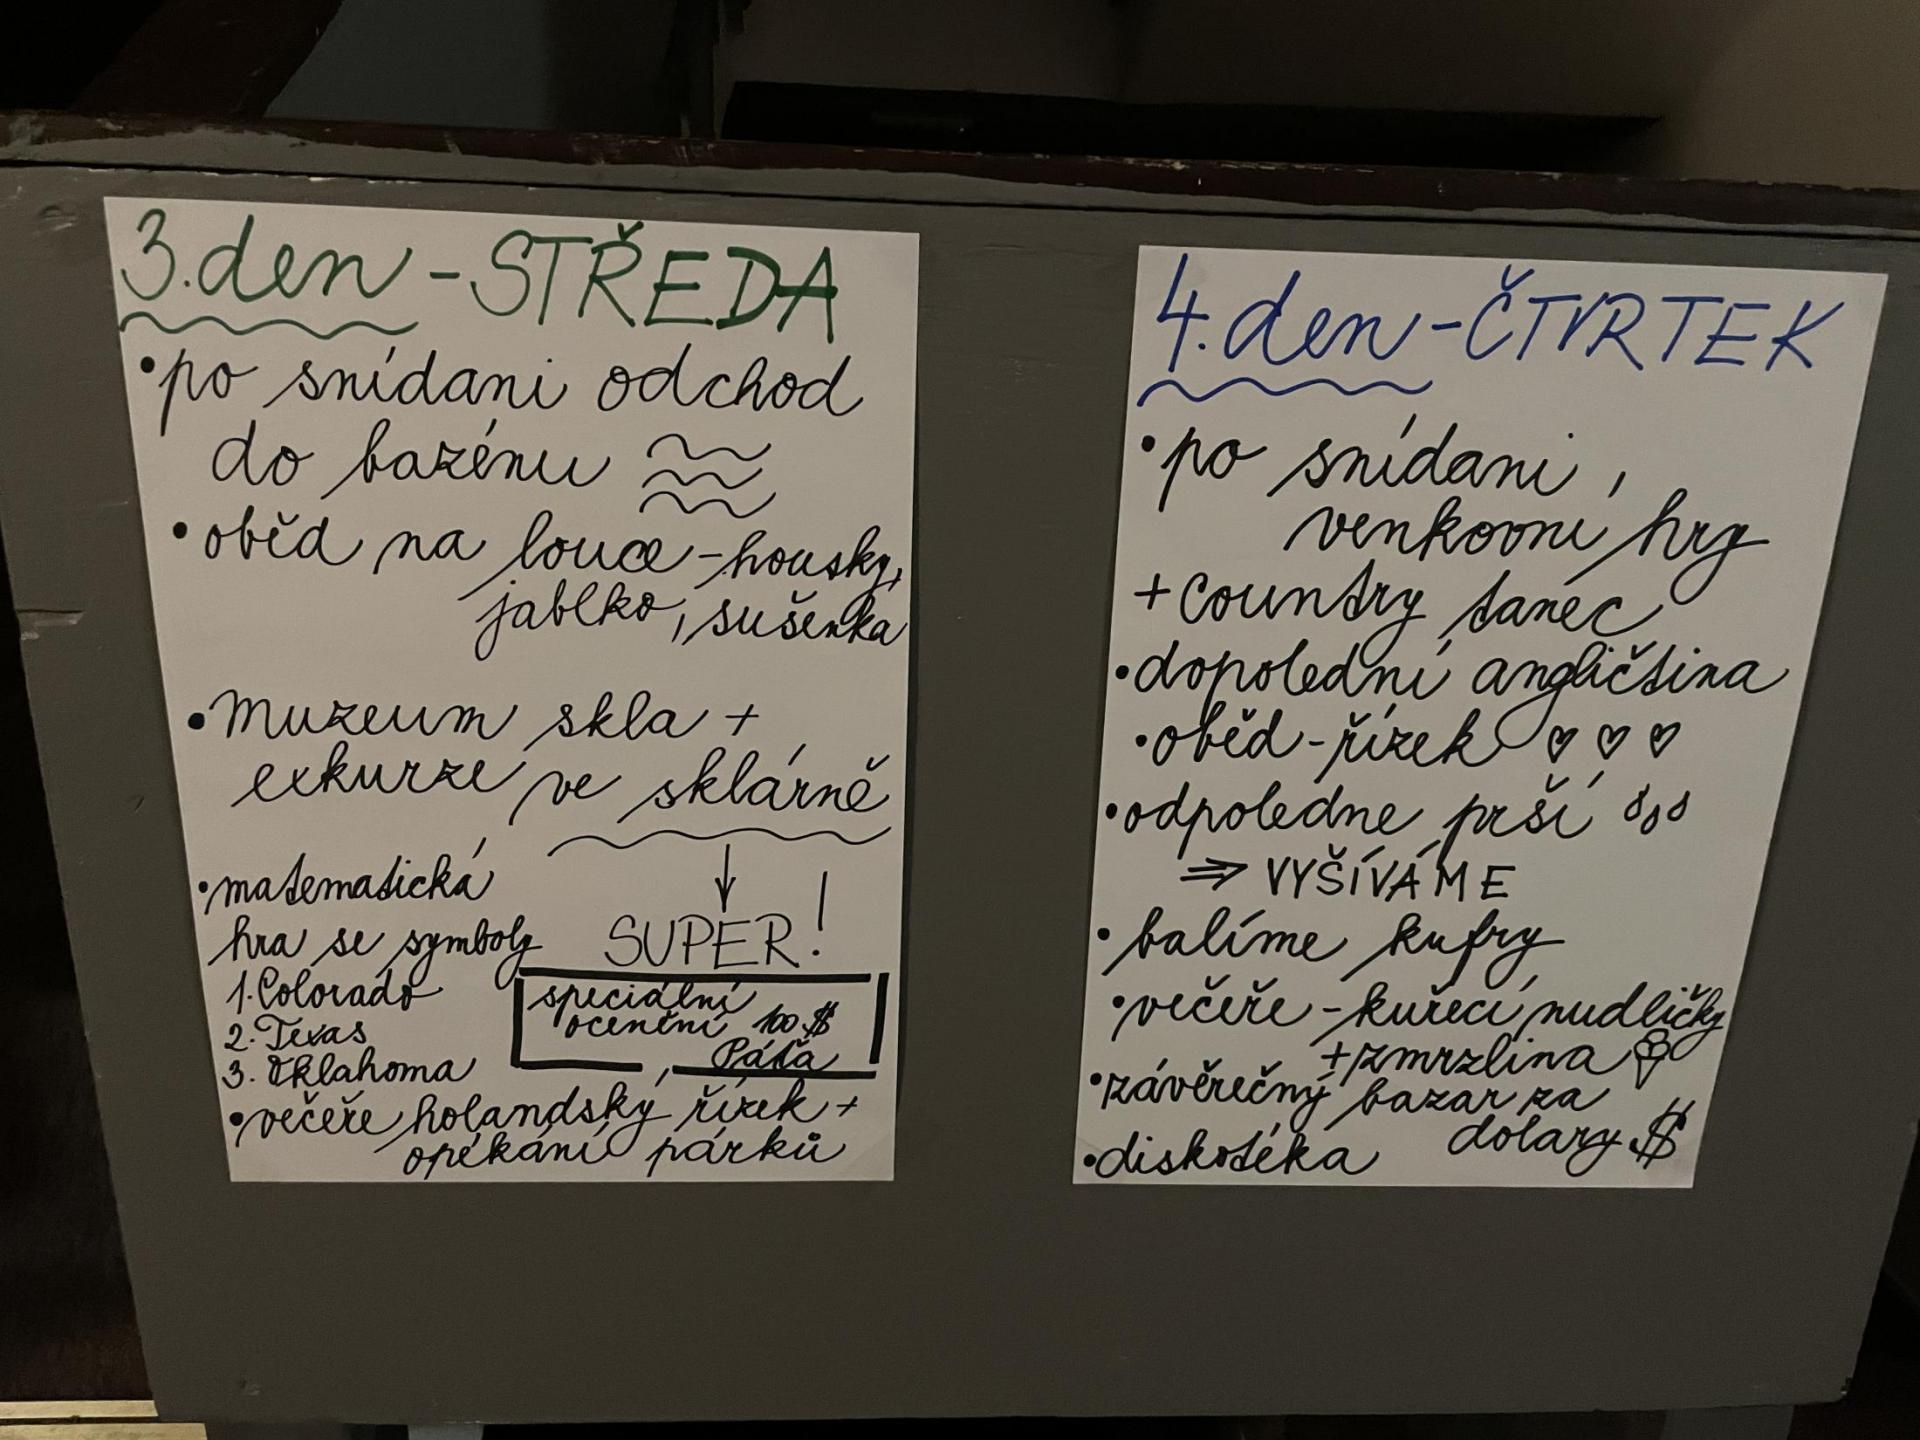 3.den - STŘEDA
• po snídani odchod
do bazénu
• oběd na louce - housky,
jablko, sušenka
• muzeum skla +
exkurze ve sklárně
• matematická
hra se symboly
1. Colorado
2. Texas
3. Oklahoma
↓
SUPER!
speciální
ocenění 100 $
Páťa
• večeře holandský řízek +
opékání párků
4.den - ČTVRTEK
• po snídani
venkovní hry
+ country tanec
• dopolední angličtina
• oběd - řízek ♡ ♡ ♡
• odpoledne prší
⇒ VYŠÍVÁME
• balíme kufry
• večeře - kuřecí nudličky
+ zmrzlina
• závěrečný bazar za
dolary $
• diskotéka